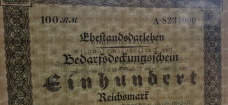 100 RM A·8234000
Ehestandsdarlehen
Bedarfsdeckungsschein
Einhundert
Reichsmark